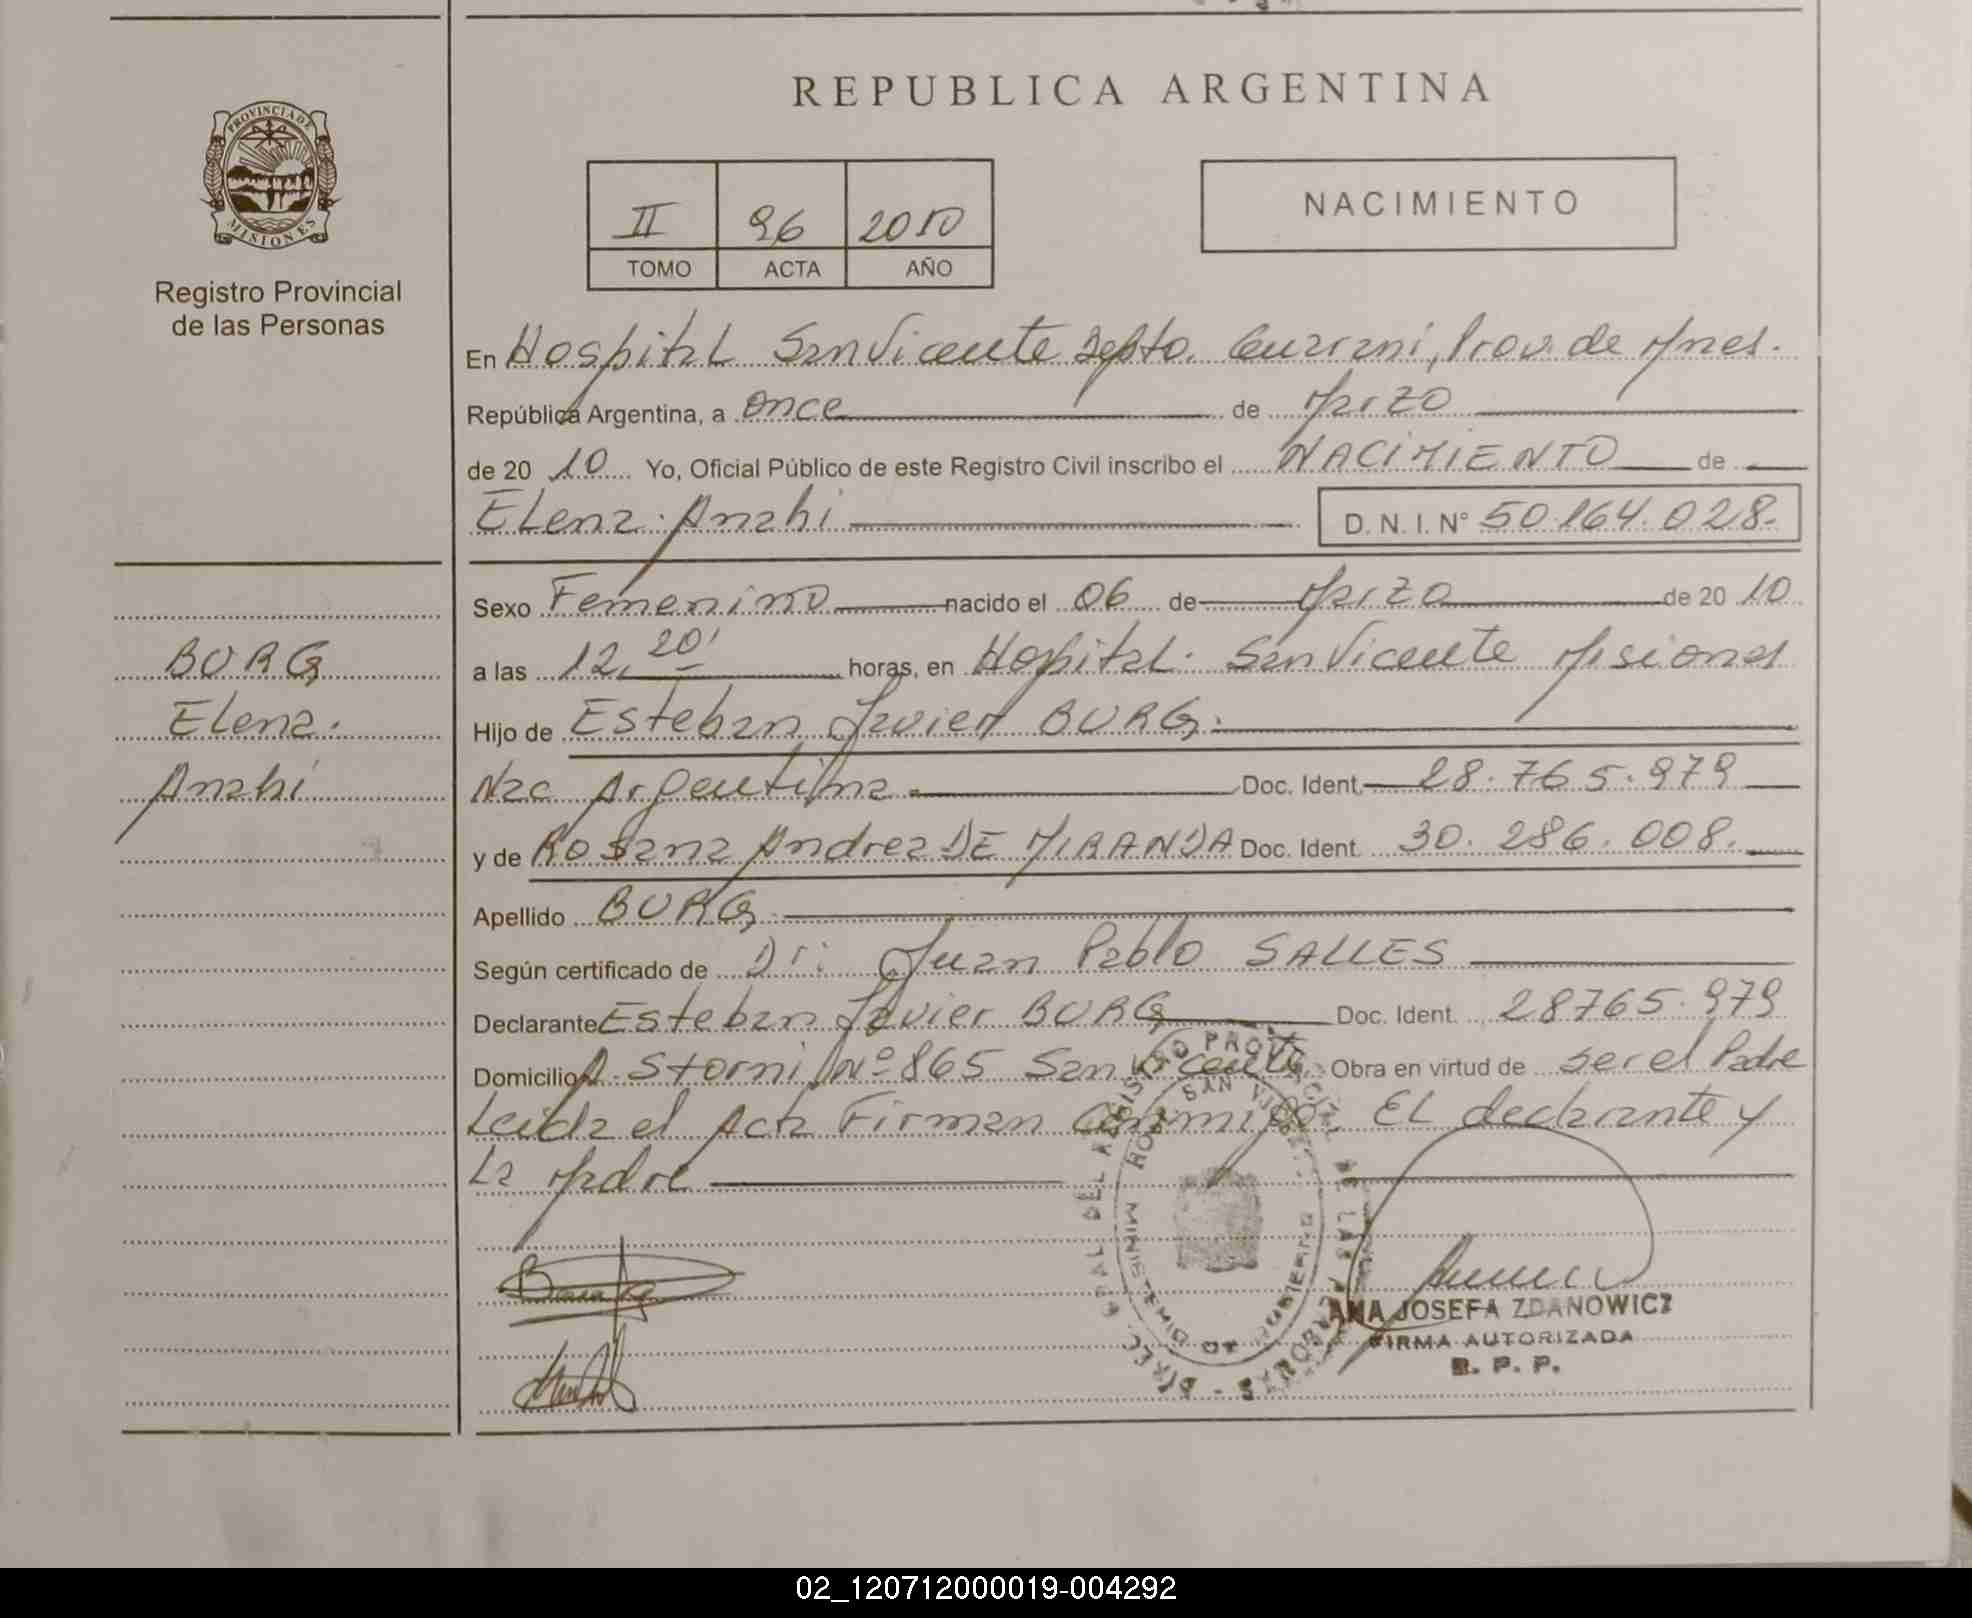 REPUBLICA ARGENTINA
PROVINCIA DE
MISIONES
Registro Provincial
de las Personas
II 96 2010
TOMO ACTA AÑO
NACIMIENTO
En Hospital San Vicente Depto. Guarani, Prov. de Mnes.
República Argentina, a once de Marzo
de 20 10 Yo, Oficial Público de este Registro Civil inscribo el NACIMIENTO de
Elena Anahi D. N. I. Nº 50.164.028.
Sexo Femenino nacido el 06 de Marzo de 20 10
a las 12,20' horas, en Hospital San Vicente Misiones
Hijo de Esteban Javier BURG.
Nac Argentina Doc. Ident. 28.765.979
y de Rosana Andrea DE MIRANDA Doc. Ident. 30.286.008.
Apellido BURG
Según certificado de Dr: Juan Pablo SALLES
Declarante Esteban Javier BURG Doc. Ident. 28765.979
Domicilio A. Storni Nº 865 San Vicente Obra en virtud de ser el Padre
Leida el Acta Firman conmigo. EL declarante y
La Madre
BURG
Elena.
Anahi
ANA JOSEFA ZDANOWICZ
FIRMA AUTORIZADA
R. P. P.
02_120712000019-004292